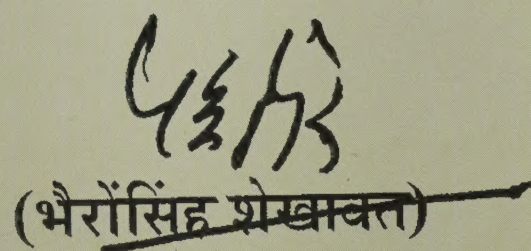 (भैरोंसिंह शेखावत)